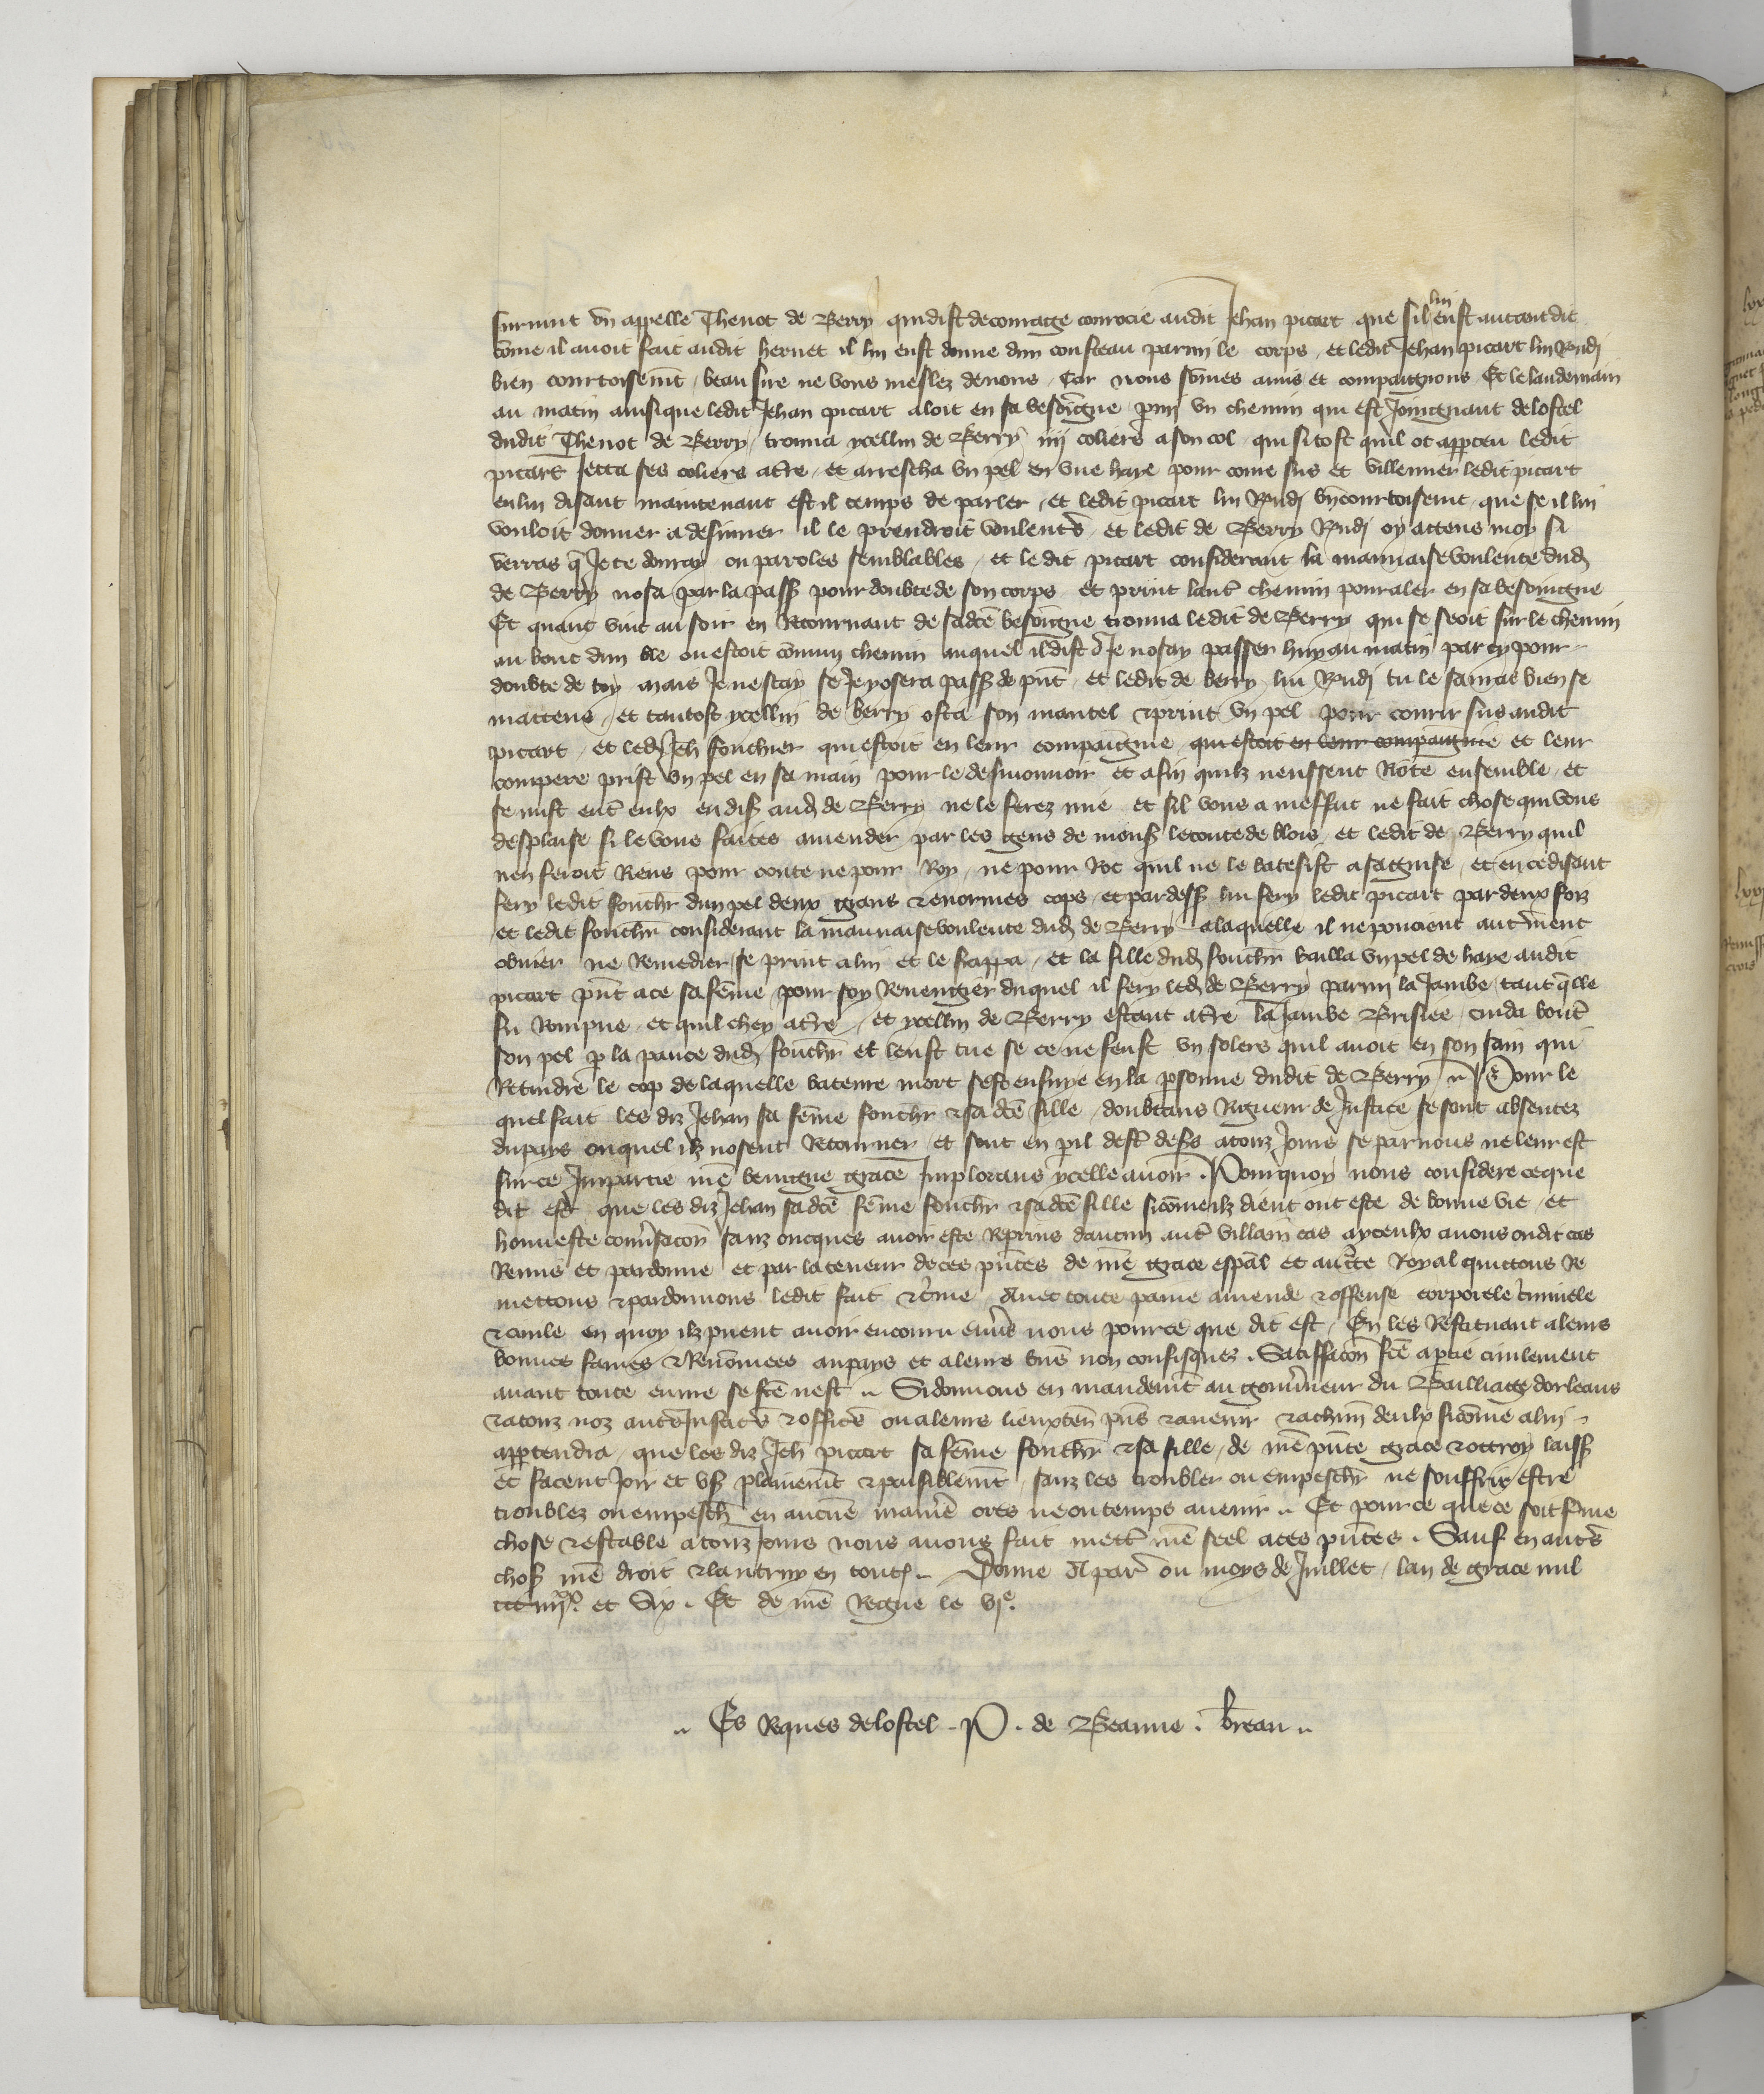 survint un appelle Thenot de Berry qui dist de couraige courocie audit Jehan picart que sil lui eust autant dit
come il avoit fait audit hervet il lui eust donne dun cousteau parmi le corps / et ledit Jehan picart lui Rndi
bien courtoisemt / beau sire ne vous meslez de nous / Car nous somes amis et compaignons Et le landemain
au matin ainsi que ledit Jehan picart aloit en sa besoigne pmi un chemin qui est Joingnant de lostel
dudit Thenot de Berry / trouva ycellui de Berry iiij coliers a son col qui sitost quil ot appceu ledit
picart Jetta ses coliers atre / et arrescha un pel en une haye pour corre sus et villenner ledit picart
en lui disant maintenant est il temps de parler / et ledit picart lui Rndi bn courtoisemt que se il lui
vouloit donner a desiuner il le prendroit voulents / et ledit de Berry Rndi oy attens moy si
verras q Je te donray ou paroles semblables / et ledit picart considerant la mauvaise voulente dud
de Berry nosa par la pass pour doubte de son corps et print laut chemin pour aler en sa besoingne
Et quant vint au soir en Retournant de sadce besoingne trouva ledit de Berry qui se seoit sur le chemin
au bout dun ble ou estoit comun chemin auquel il dist Je nosay passer huy au matin par cy pour
doubte de toy mais Je ne scay se Je y osera pass de pnt / et ledit de berry lui Rndi tu le sauras bien se
mattens / et tantost ycellui de berry osta son mantel & print un pel pour courir sus audit
picart / et led Jeh fouchier qui estoit en leur compaignie qui estoit en leur compaignie et leur
compere prist un pel en sa main pour le desmouvoir et afin quilz neussent Rote ensemble / et
se mist ent eulx en dis aud de Berry ne le ferez mie et sil vous a meffait ne fait chose qui vous
desplaise si le vous faites amender par les gens de mons le conte de blois / et ledit de Berry quil
nen feroit Riens pour conte ne pour Roy / ne pour Roc quil ne le batesist a sa guise / et en ce disant
fery ledit fouchr dun pel deux grans & enormes cops / et par dess lui fery ledit picart par deux foiz
et ledit fouchr considerant la mauvaise voulente dud de Berry a laquelle il ne pouoient autrment
obvier ne Remedier se print a lui et le frappa / et la fille dud fouchr bailla un pel de haye audit
picart pnt ace sa feme / pour soy Revengier duquel il fery led de Berry parmi la Jambe / tant qlle
fu Rompue et quil chey atre / et ycellui de Berry estant atre la Jambe Brisiee / cuida bout
son pel p la pance dud fouchr et leust tue se ce ne feust un solers quil avoit en son sain qui
Retindre le cop de laquelle bateure mort sest ensuye en la psonne dudit de Berry Pour le
quel fait les diz Jehan sa feme fouchr & sadce fille / doubtans Rigueur de Justice se sont absentez
du pays ouquel ilz nosent Retourner / et sont en pil dest dess a touz Jours se par nous ne leur est
sur ce Impartie nre benigne grace Implorans ycelle avoir . Pour quoy nous considere ce que
dit est que les diz Jehan sadce feme fouchr & sadce fille sicome ilz dient ont este de bonne vie / et
honneste convsacon sanz oncques avoir este Reprins daucun aut villain cas a yceulx avons oudit cas
Remis et pardonne et par la teneur de ces pntes de nre grace espal et aucte Royal quittons Re
mettons & pardonnons ledit fait & crime Avec toute paine amende & offense corporele crimiele
& civile en quoy ilz puent avoir encouru envrs nous pour ce que dit est / En les Restituant a leurs
bonnes fames & Renomees au pays et a leurs biens non confisquez . Satiffacon fce a ptie civilement
avant toute euvre se fce nest Si donnons en mandemt au gouvrneur du Bailliage dorleans
& a touz noz autrs Justics & officrs ou a leurs lieuxten pns & avenir & a chun deulx sicome a lui
apptendra / que les diz Jeh picart sa feme fouchr & sa fille / de nre pnte grace & ottroy laiss
et facent Joir et us plainemt & paisiblemt sanz les troubler ou empeschr ne souffrir estre
troublez ou empesch en aucune manre ores ne ou temps avenir Et pour ce que ce soit ferme
chose & estable a touz Jours nous avons fait mett nre seel a ces pntes . Sauf en autrs
chos nre droit & lautruy en touts Donne A par ou moys de Juillet / lan de grace mil
ccc iiijxx et Six . Et de nre Regne le vje.
Es Reques de lostel . P . de Beaune . breau